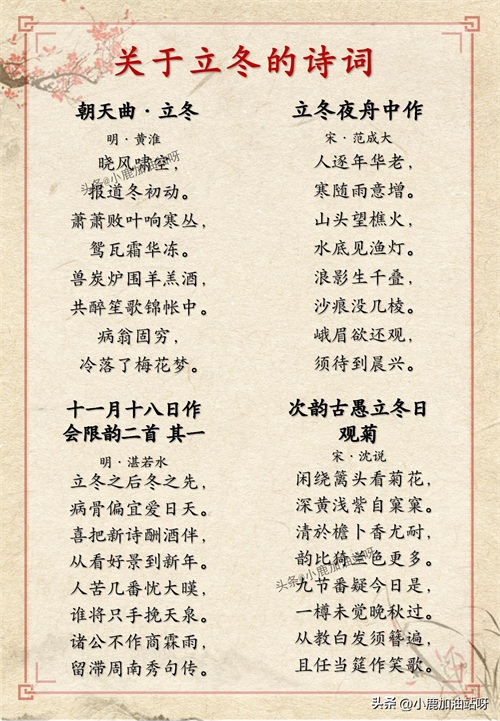 关于立冬的诗词
朝天曲·立冬
明·黄淮
晓风啸空，
报道冬初动。
萧萧败叶响寒丛，
鸳瓦霜华冻。
兽炭炉围羊羔酒，
共醉笙歌锦帐中。
病翁固穷，
冷落了梅花梦。
头条@小鹿加油站呀
立冬夜舟中作
宋·范成大
人逐年华老，
寒随雨意增。
山头望樵火，
水底见渔灯。
浪影生千叠，
沙痕没几棱。
峨眉欲还观，
须待到晨兴。
十一月十八日作
会限韵二首 其一
明·湛若水
立冬之后冬之先，
病骨偏宜爱日天。
喜把新诗酬酒伴，
从看好景到新年。
人苦几番忧大暵，
谁将只手挽天泉。
诸公不作商霖雨，
留滞周南秀句传。
次韵古愚立冬日
观菊
宋·沈说
闲绕篱头看菊花，
深黄浅紫自窠窠。
清於檐卜香尤耐，
韵比倚兰色更多。
九节番疑今日是，
一樽未觉晚秋过。
从教白发须簪遍，
且任当筵作笑歌。
头条@小鹿加油站呀
头条@小鹿加油站呀